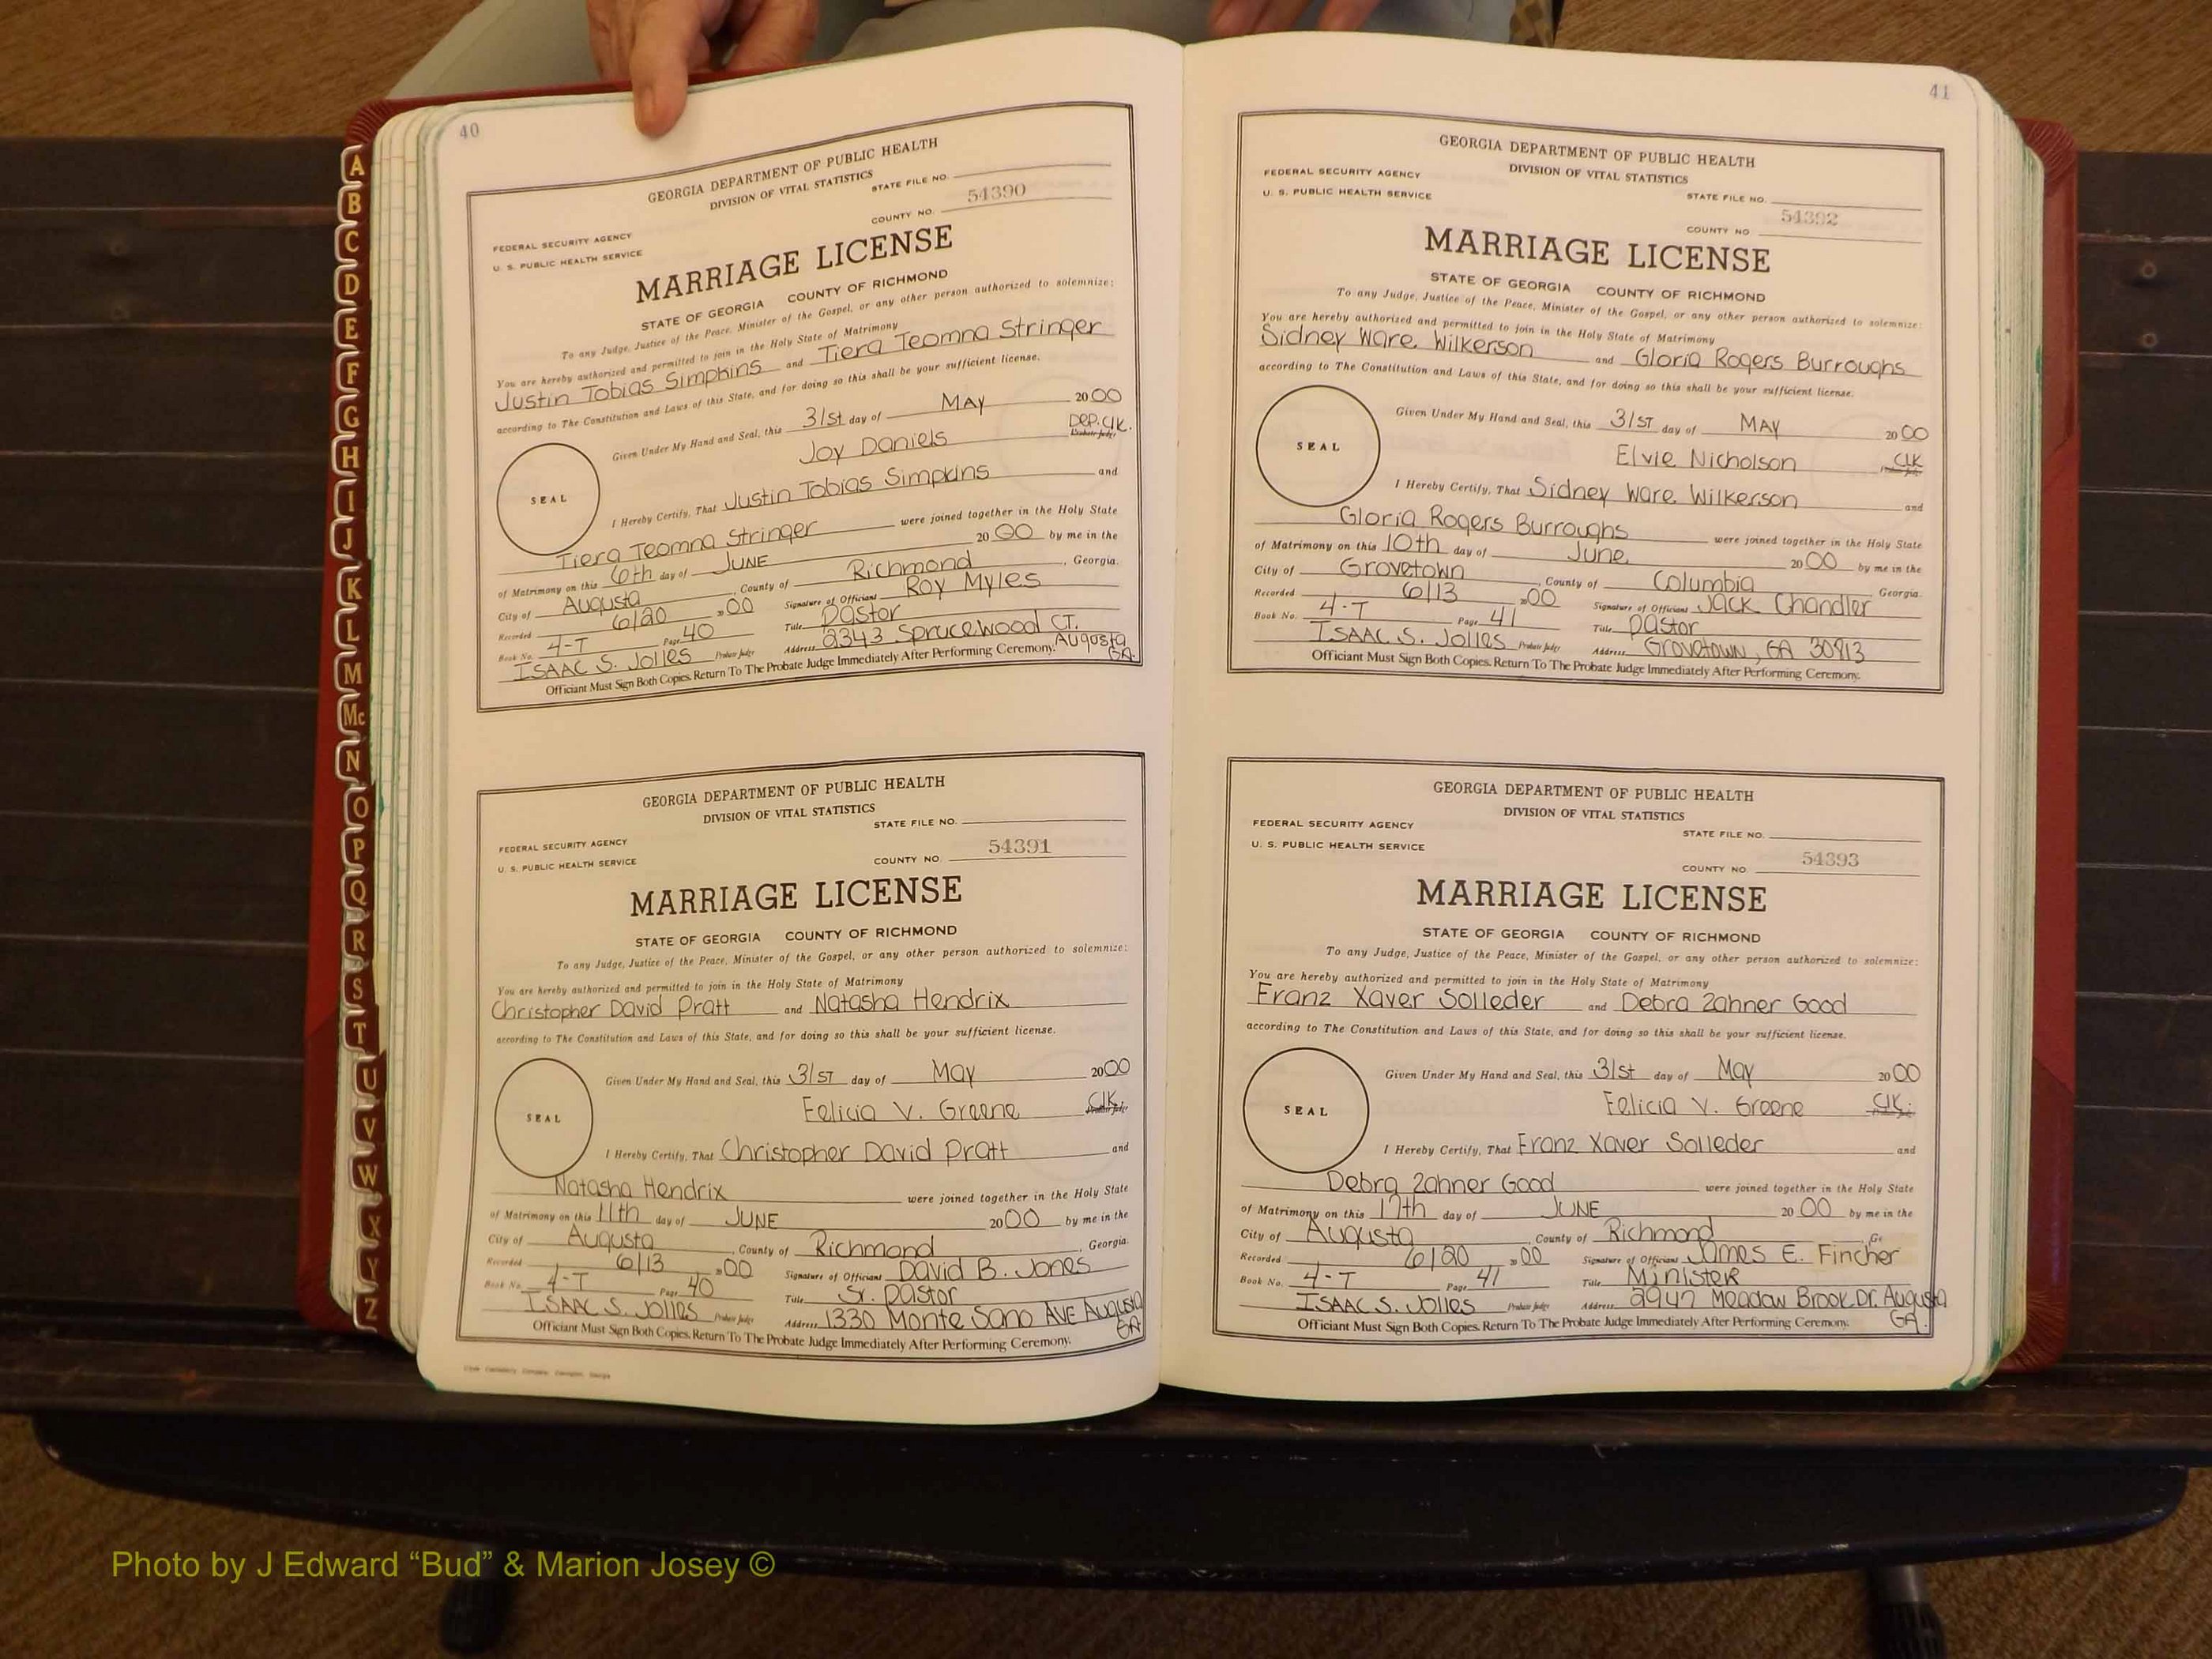 A
B
C
D
E
F
G
H
I
J
K
L
M
Mc
N
O
P
Q
R
S
T
U
V
W
X
Y
Z
40
GEORGIA DEPARTMENT OF PUBLIC HEALTH
DIVISION OF VITAL STATISTICS
STATE FILE NO.
54390
COUNTY NO.
FEDERAL SECURITY AGENCY
U. S. PUBLIC HEALTH SERVICE
MARRIAGE LICENSE
STATE OF GEORGIA COUNTY OF RICHMOND
To any Judge, Justice of the Peace, Minister of the Gospel, or any other person authorized to solemnize:
You are hereby authorized and permitted to join in the Holy State of Matrimony
Justin Tobias Simpkins and Tiera Teomna Stringer
according to The Constitution and Laws of this State, and for doing so this shall be your sufficient license.
Given Under My Hand and Seal, this 31st day of MAY 2000
Joy Daniels DEP. CLK. Probate Judge
SEAL
I Hereby Certify, That Justin Tobias Simpkins and
Tiera Teomna Stringer were joined together in the Holy State
of Matrimony on this 6th day of JUNE 2000 by me in the
City of Augusta, County of Richmond, Georgia.
Recorded 6/20 2000 Signature of Officiant Roy Myles
Book No. 4-T Page 40 Title Pastor
ISAAC S. Jolles Probate Judge Address 2343 Sprucewood CT. Augusta GA.
Officiant Must Sign Both Copies. Return To The Probate Judge Immediately After Performing Ceremony.
GEORGIA DEPARTMENT OF PUBLIC HEALTH
DIVISION OF VITAL STATISTICS
STATE FILE NO.
54391
COUNTY NO.
FEDERAL SECURITY AGENCY
U. S. PUBLIC HEALTH SERVICE
MARRIAGE LICENSE
STATE OF GEORGIA COUNTY OF RICHMOND
To any Judge, Justice of the Peace, Minister of the Gospel, or any other person authorized to solemnize:
You are hereby authorized and permitted to join in the Holy State of Matrimony
Christopher David Pratt and Natasha Hendrix
according to The Constitution and Laws of this State, and for doing so this shall be your sufficient license.
Given Under My Hand and Seal, this 31ST day of May 2000
Felicia V. Greene Clk. Probate Judge
SEAL
I Hereby Certify, That Christopher David Pratt and
Natasha Hendrix were joined together in the Holy State
of Matrimony on this 11th day of JUNE 2000 by me in the
City of Augusta, County of Richmond, Georgia.
Recorded 6/13 2000 Signature of Officiant David B. Jones
Book No. 4-T Page 40 Title Sr. Pastor
ISAAC S. Jolles Probate Judge Address 1330 Monte Sano AVE Augusta GA
Officiant Must Sign Both Copies. Return To The Probate Judge Immediately After Performing Ceremony.
41
GEORGIA DEPARTMENT OF PUBLIC HEALTH
DIVISION OF VITAL STATISTICS
FEDERAL SECURITY AGENCY
U. S. PUBLIC HEALTH SERVICE
STATE FILE NO.
54392
COUNTY NO
MARRIAGE LICENSE
STATE OF GEORGIA COUNTY OF RICHMOND
To any Judge, Justice of the Peace, Minister of the Gospel, or any other person authorized to solemnize:
You are hereby authorized and permitted to join in the Holy State of Matrimony
Sidney Ware Wilkerson and Gloria Rogers Burroughs
according to The Constitution and Laws of this State, and for doing so this shall be your sufficient license.
Given Under My Hand and Seal, this 31ST day of MAY 2000
Elvie Nicholson CLK Probate Judge
SEAL
I Hereby Certify, That Sidney Ware Wilkerson and
Gloria Rogers Burroughs were joined together in the Holy State
of Matrimony on this 10th day of June 2000 by me in the
City of Grovetown, County of Columbia Georgia.
Recorded 6/13 2000 Signature of Officiant Jack Chandler
Book No. 4-T Page 41 Title Pastor
ISAAC S. Jolles Probate Judge Address Grovetown, GA 30813
Officiant Must Sign Both Copies. Return To The Probate Judge Immediately After Performing Ceremony.
GEORGIA DEPARTMENT OF PUBLIC HEALTH
DIVISION OF VITAL STATISTICS
FEDERAL SECURITY AGENCY
U. S. PUBLIC HEALTH SERVICE
STATE FILE NO.
54393
COUNTY NO
MARRIAGE LICENSE
STATE OF GEORGIA COUNTY OF RICHMOND
To any Judge, Justice of the Peace, Minister of the Gospel, or any other person authorized to solemnize:
You are hereby authorized and permitted to join in the Holy State of Matrimony
Franz Xaver Solleder and Debra Zahner Good
according to The Constitution and Laws of this State, and for doing so this shall be your sufficient license.
Given Under My Hand and Seal, this 31st day of May 2000
Felicia V. Greene Clk.
SEAL
I Hereby Certify, That Franz Xaver Solleder and
Debra Zahner Good were joined together in the Holy State
of Matrimony on this 17th day of JUNE 2000 by me in the
City of Augusta, County of Richmond, Ge
Recorded 6/20 2000 Signature of Officiant James E. Fincher
Book No. 4-T Page 41 Title Minister
ISAAC S. Jolles Probate Judge Address 2947 Meadow Brook Dr. Augusta GA.
Officiant Must Sign Both Copies. Return To The Probate Judge Immediately After Performing Ceremony.
Photo by J Edward “Bud” & Marion Josey ©